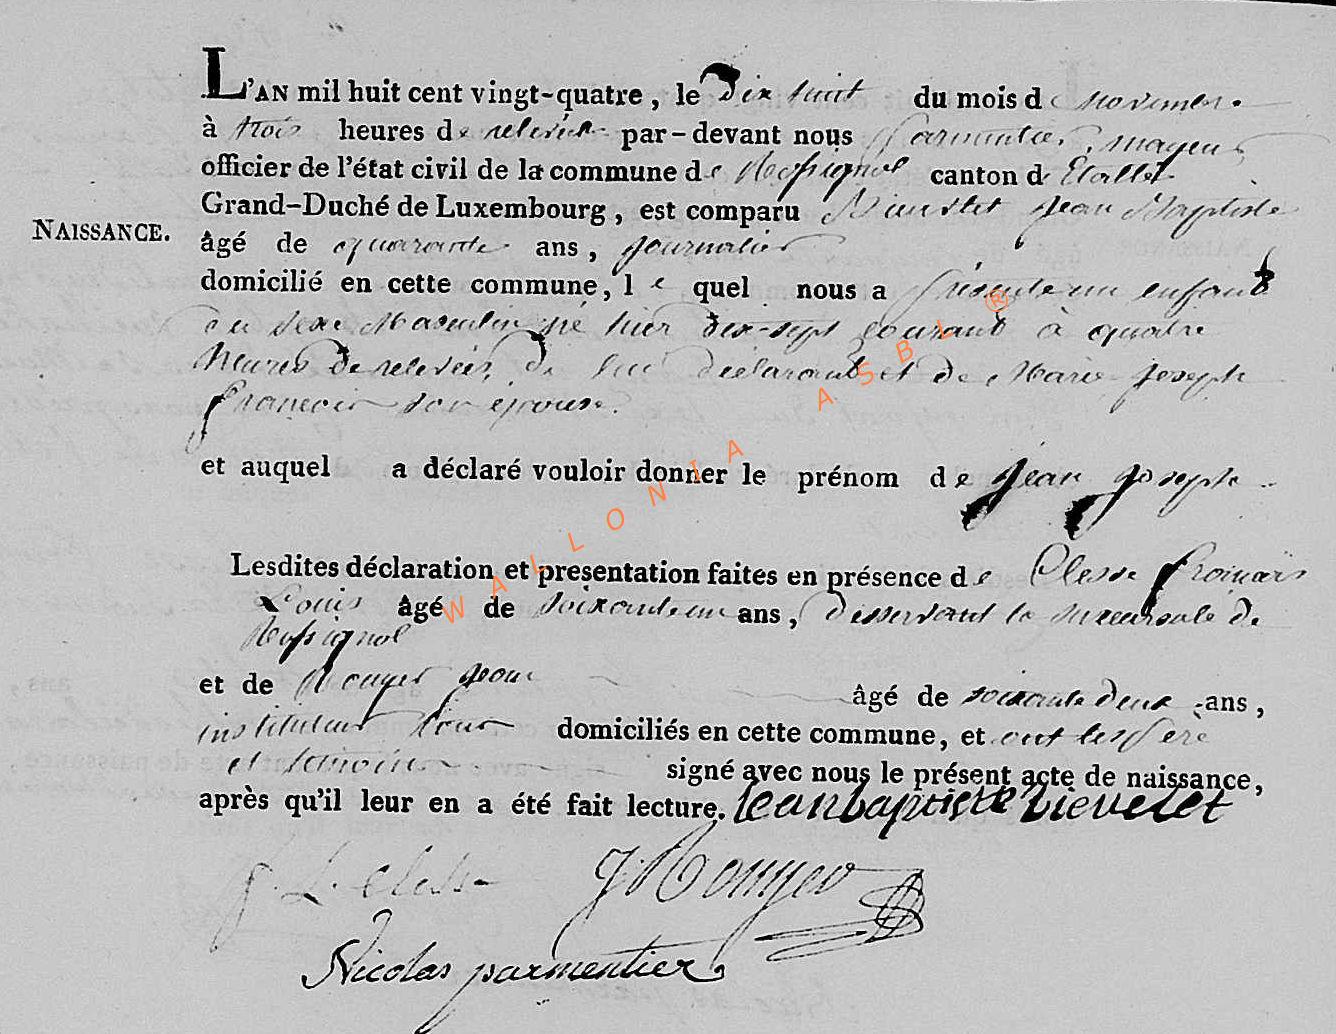 L'AN mil huit cent vingt-quatre, le Dix huit du mois de novembre
à trois heures de relevée par-devant nous Parmentier, mayeur
officier de l'état civil de la commune de Rossignol canton d'Etalle
Grand-Duché de Luxembourg, est comparu Jean Baptiste
NAISSANCE.
âgé de quarante ans, journalier
domicilié en cette commune, le quel nous a présenté un enfant
du sexe Masculin né hier dix-sept courant à quatre
heures de relevée, de lui déclarant et de Marie Joseph
François son epouse.
et auquel a déclaré vouloir donner le prénom de Jean Joseph
Lesdites déclaration et presentation faites en présence de Clesse François
Louis âgé de soixante un ans, Desservant la succursale de
Rossignol
et de Rouyer Jean âgé de soixante deux ans,
instituteur tous domiciliés en cette commune, et ont les père
et témoins signé avec nous le présent acte de naissance,
après qu'il leur en a été fait lecture. Jean baptiste
f. L. Clesse J. Rouyer
Nicolas parmentier
WALLONIA ASBL ®